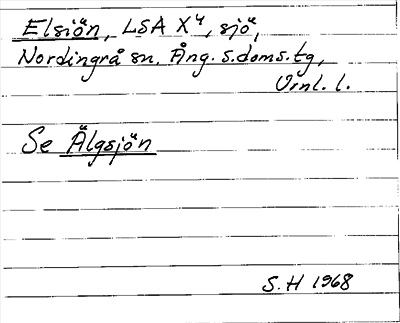 Elsiön, LSA X4, sjö,
Nordingrå sn. Ång. s. doms. tg,
Vrnl. l.
Se Älgsjön
S. H 1968